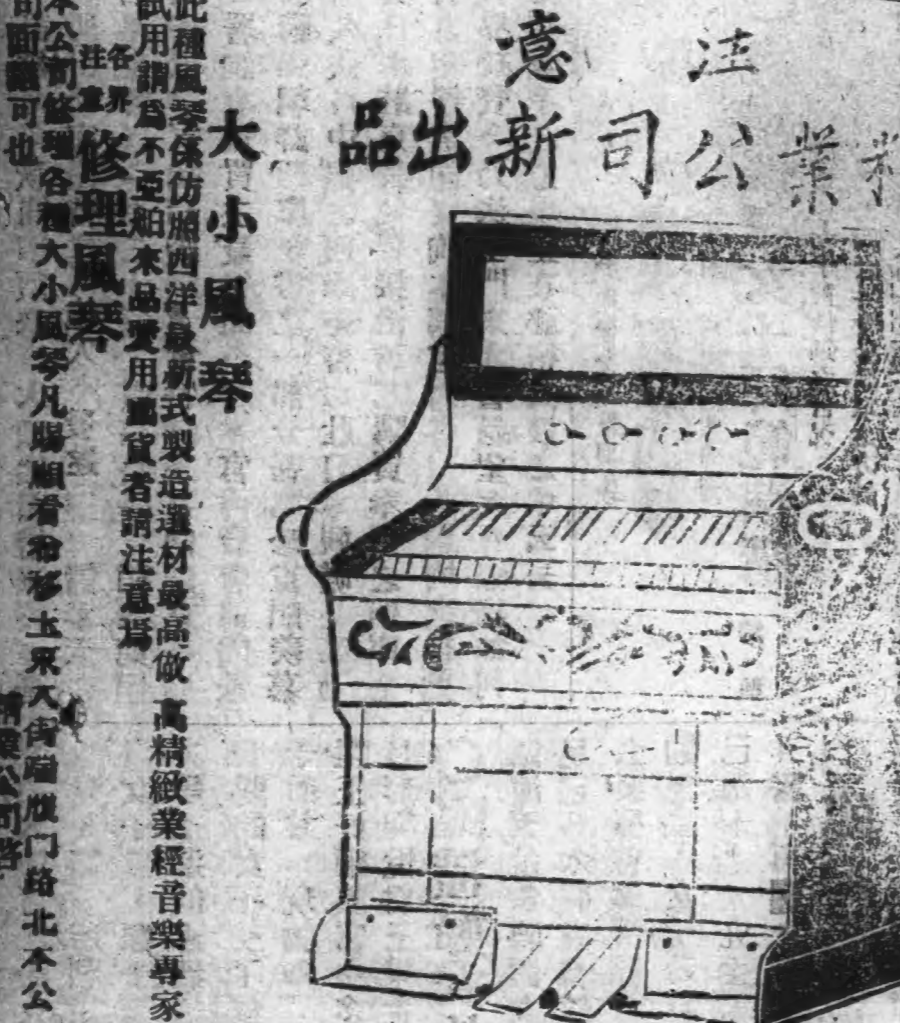 注意
業公司新出品
大小風琴
此種風琴係仿照西洋最新式製造選材最高做 高精緻業經音樂專家
試用謂爲不亞舶來品愛用國貨者請注意爲
各界
注意
修理風琴
本公司修理各種大小風琴凡賜顧者移玉大街門路北本公
司面議可也
公司啓